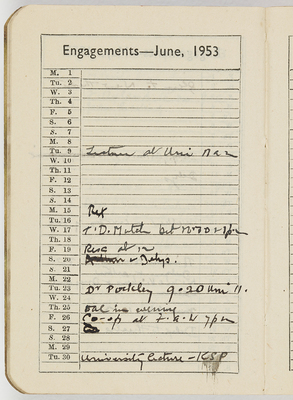 Engagements—June, 1953
M. 1
Tu. 2
W. 3
Th. 4
F. 5
S. 6
S. 7
M. 8
Tu. 9 Lecture at Uni
W. 10
Th. 11
F. 12
S. 13
S. 14
M. 15
Tu. 16
W. 17 T. D. Mutch bet
Th. 18
F. 19 at 12
S. 20
S. 21
M. 22
Tu. 23 Dr 9.20 Uni
W. 24
Th. 25 in evening
F. 26 Co-op at 7pm
S. 27
S. 28
M. 29
Tu. 30 University Lecture – KSP